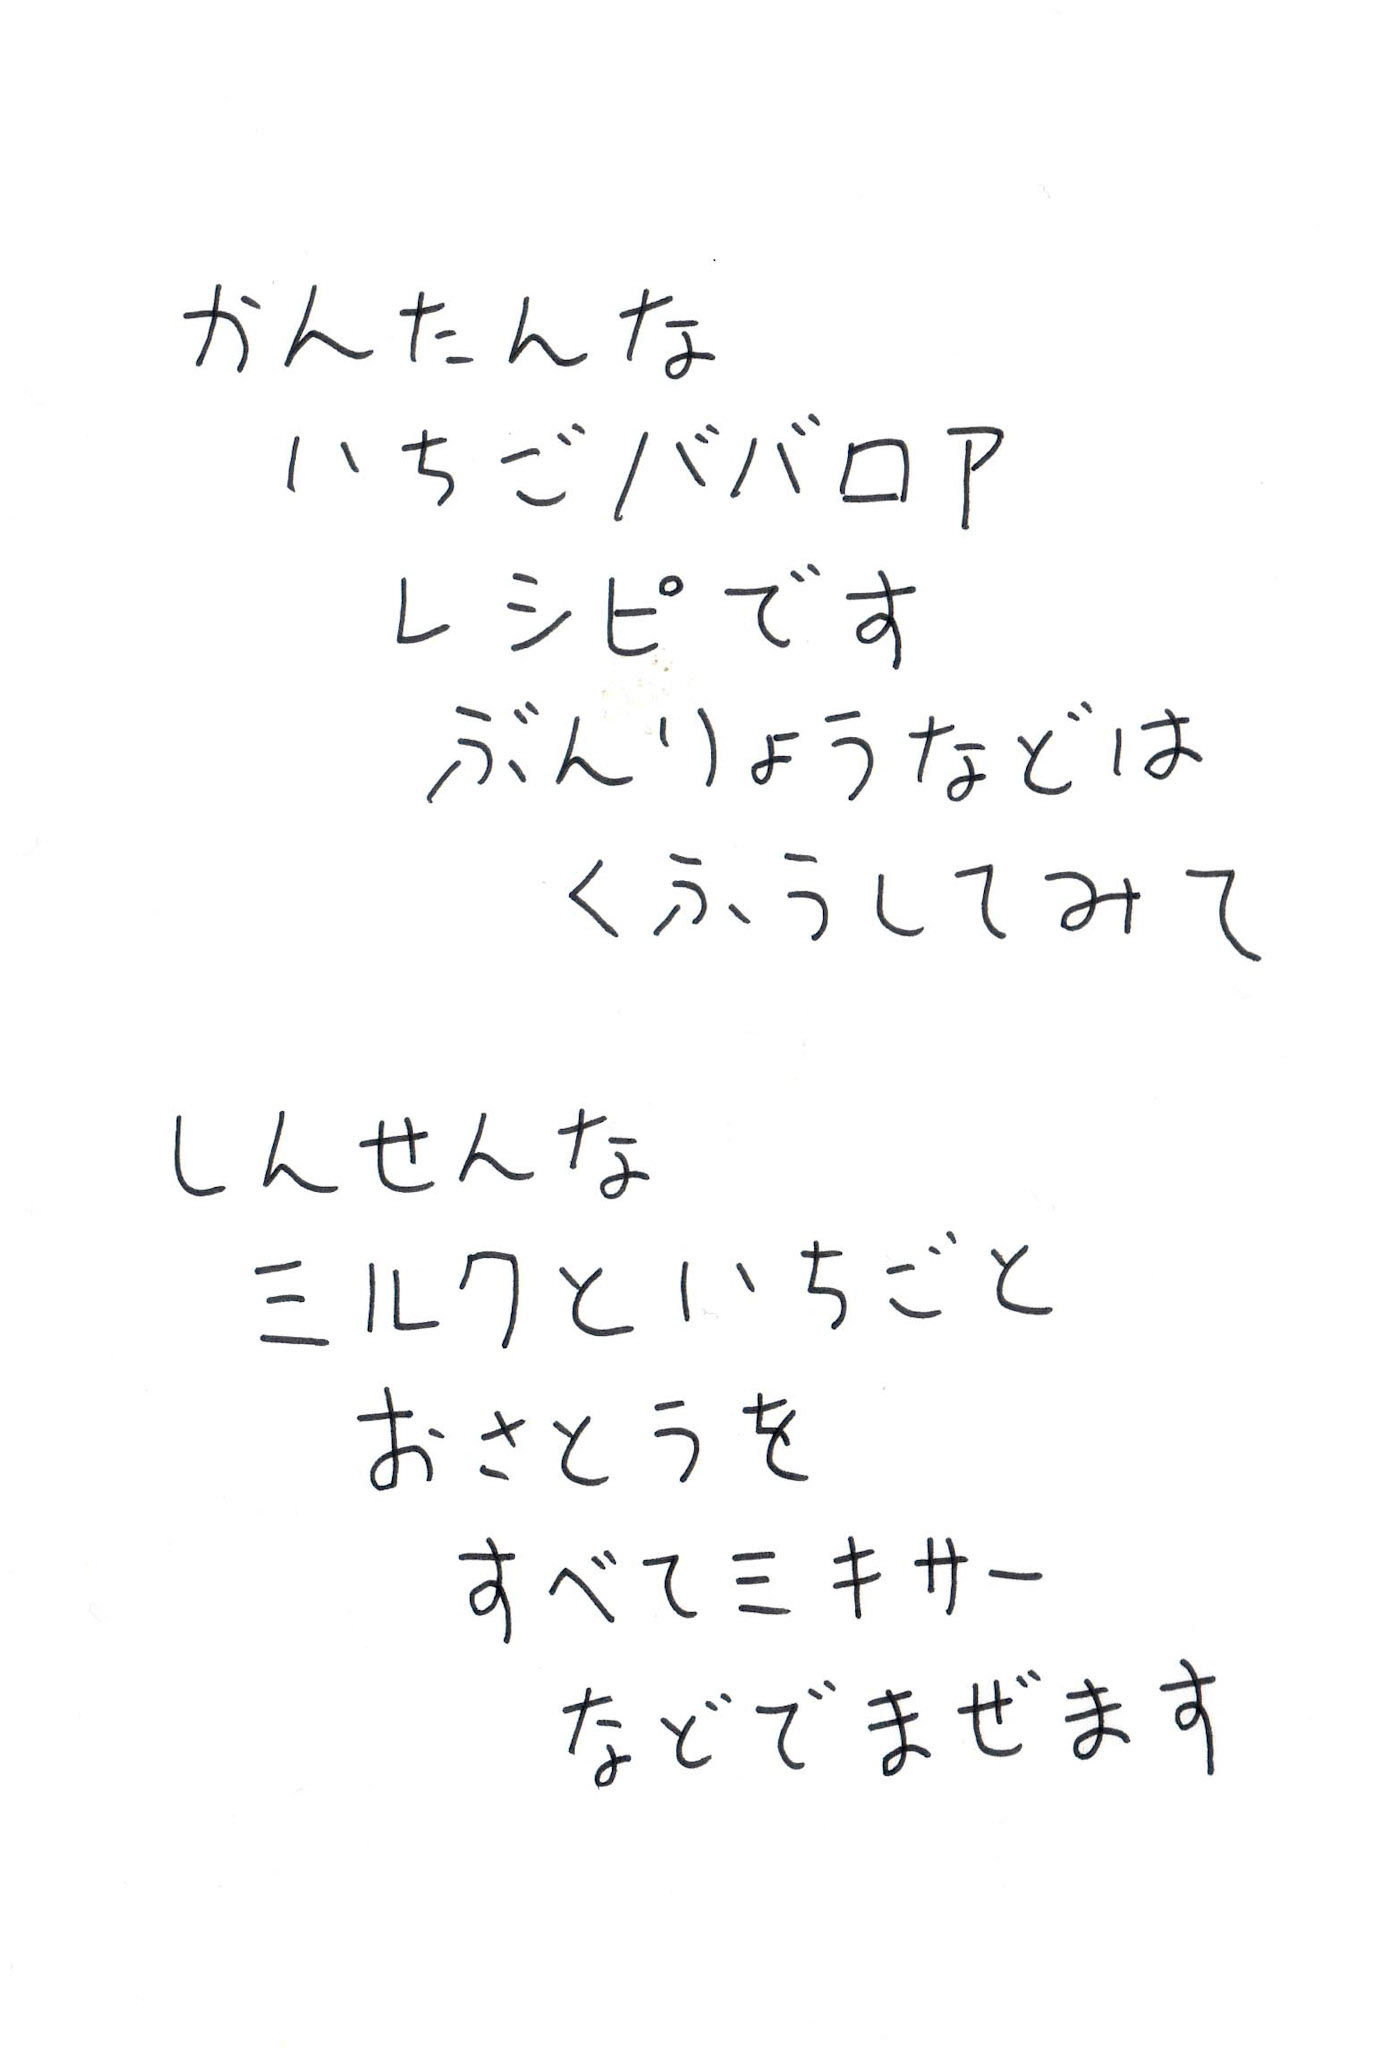 かんたんな
いちごババロア
レシピです
ぶんりょうなどは
くふうしてみて
しんせんな
ミルクといちごと
おさとうを
すべてミキサー
などでまぜます